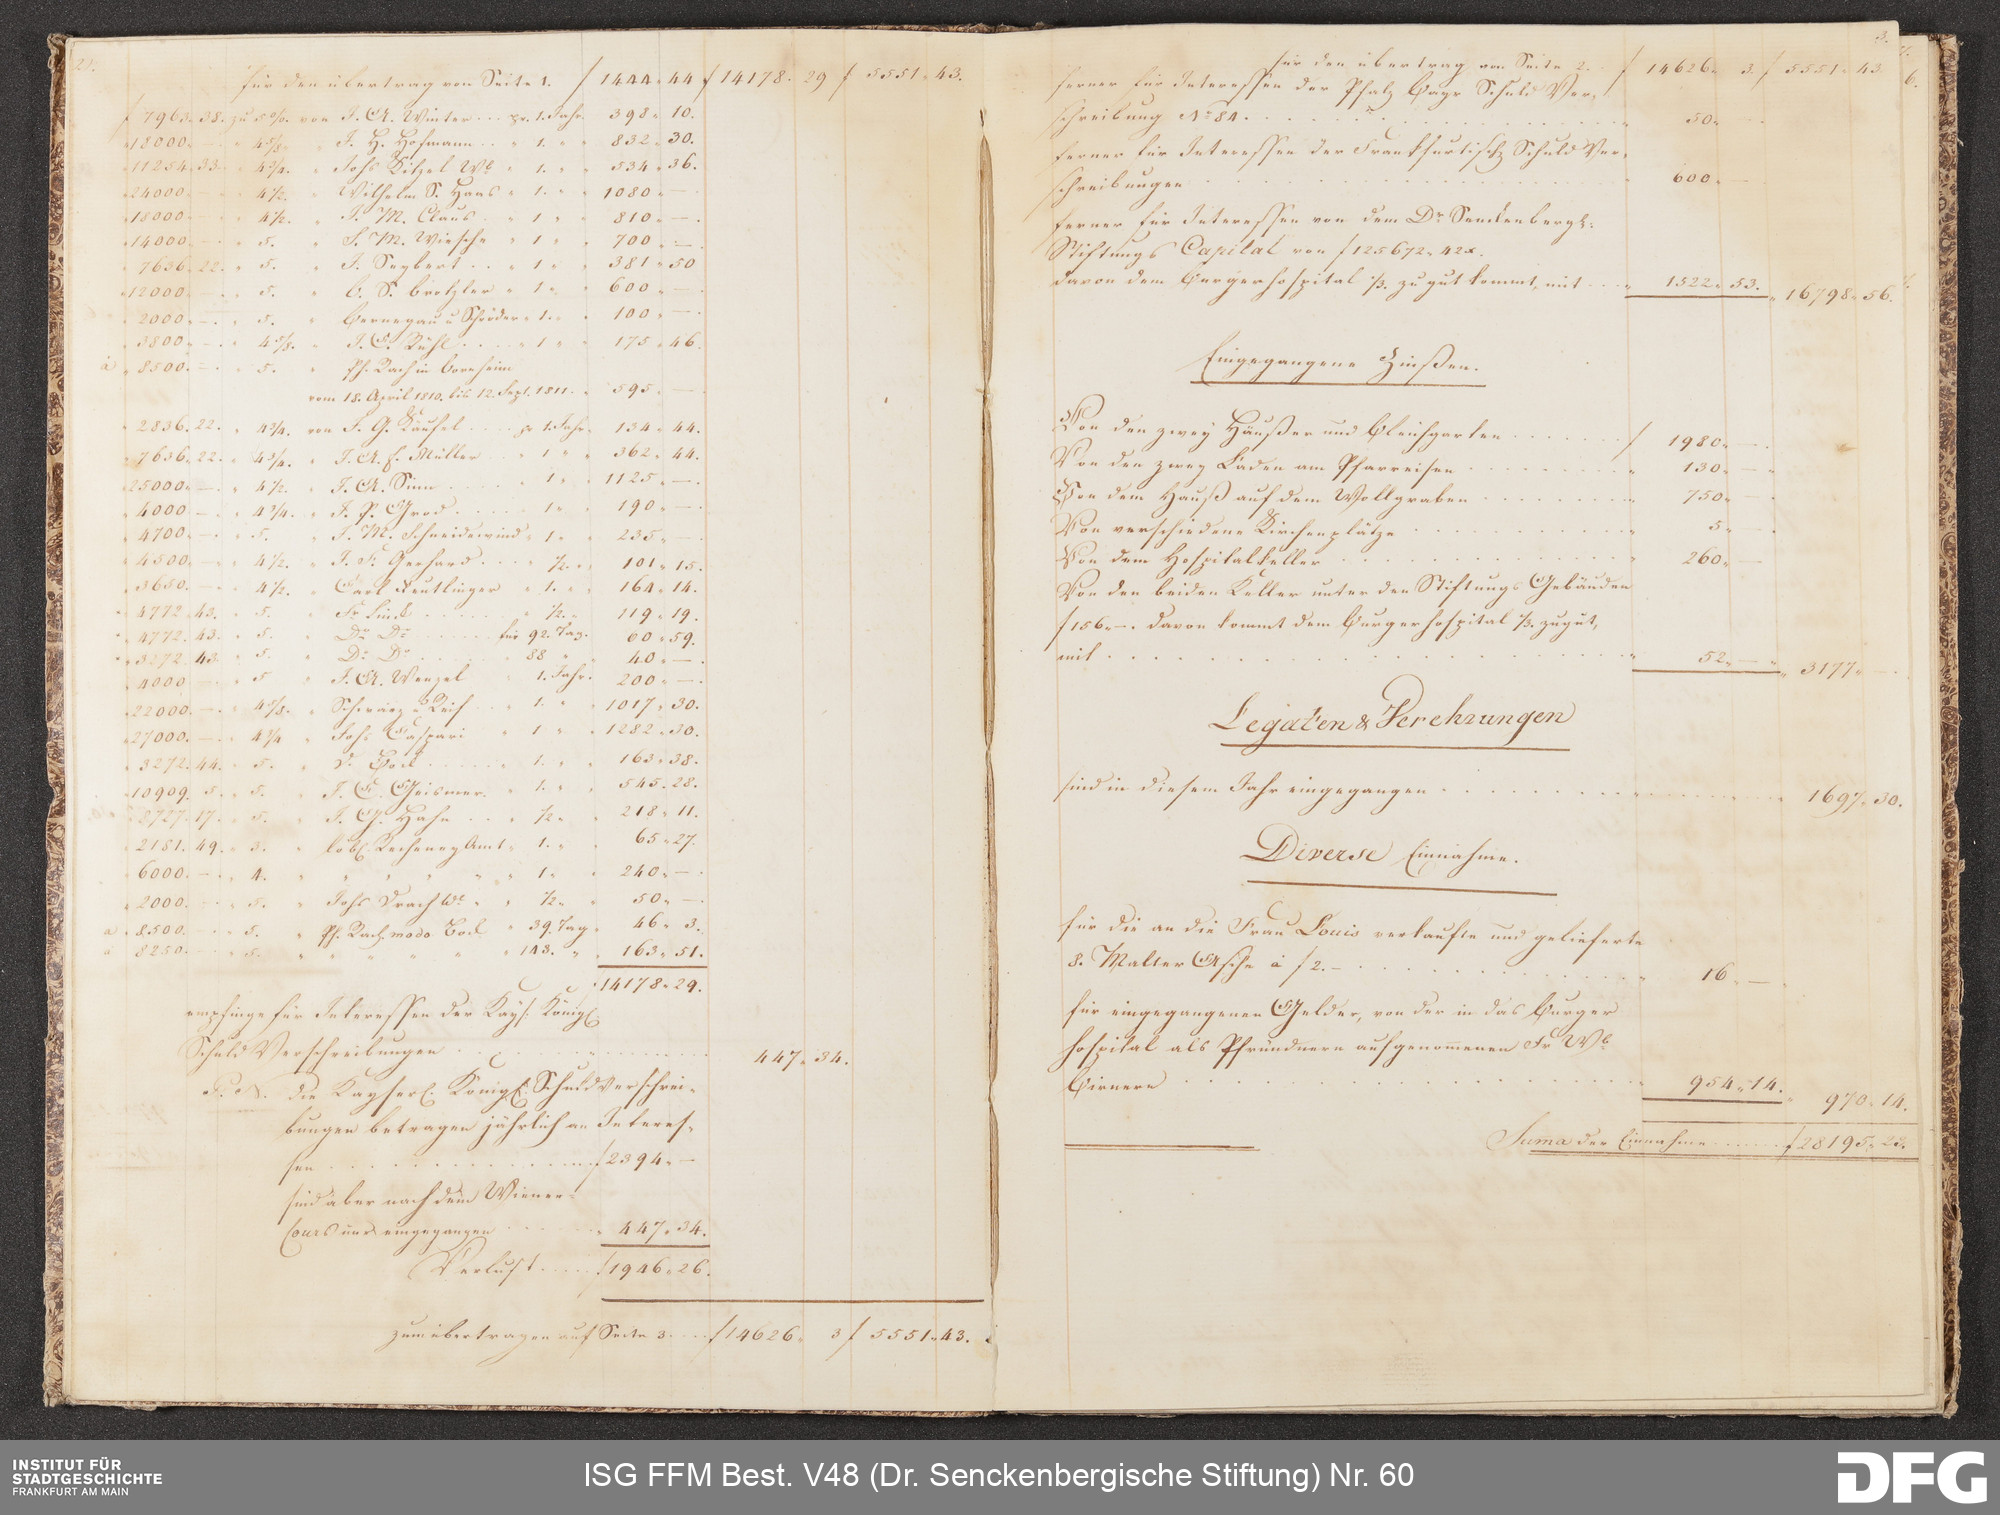 2.
für den übertrag von Seite 1. f 1444. 44 f 14178. 29 f 5551. 43.
f 7963. 38. zu 5 %. von J. A. Winter ... pr. 1. Jahr. 398. 10.
18000. — 4 5/8. " J. H. Hofmann .. " 1. " 832. 30.
11254. 33. " 4 3/4. " Johs Kitzel Wb. " 1. " 534. 36.
24000. — " 4 1/2. " Wilhelm S. Hans " 1. " 1080. —
18000. — 4 1/2. " J. M. Claus " 1 " 810. —.
14000. — " 5. " J. M. Wirsche " 1 " 700. —.
7636. 22. " 5. " J. Seybert .. " 1 " 381. 50
12000. — " 5. " C. S. Brotzler " 1. " 600. —
2000. —. " 5. " Bernegau u Schröder " 1. " 100. —
3800. — " 4 5/8. " J. C. Rühl .... " 1 " 175. 46.
à 8500. — " 5. " Ph. Rach in Bornheim
vom 18. April 1810. bis 12. Sept. 1811. " 595. —
2836. 22. " 4 3/4. von J. G. Käufel .... pr 1. Jahr. 134. 44.
7636. 22. " 4 3/4. " J. A. f. Müller ... " 1 " 362. 44.
25000. —. " 4 1/2. " J. A. Sinn " 1 " 1125. —.
4000. — " 4 3/4. " J. P. Grod .... 1 " 190. —
4700. — " 5. " J. M. Schneidewind " 1. " 235. —
4500. — " 4 1/2. " J. F. Gerhard .... 1/2. " 101. 15.
3650. — " 4 1/2. " Carl Reutlinger " 1. " 164. 14.
4772. 43. " 5. " Fr. Lind " 1/2. " 119. 19.
4772. 43. " 5. " Do Do für 92. Tag. " 60. 59.
3272. 43. " 5. " Do Do " 88 " 40. —.
4000 — " 5 " J. A. Wenzel " 1. Jahr. 200. —.
22000. —. " 4 5/8. " Schwarz & Reif " 1. " 1017. 30.
27000. — " 4 3/4 " Johs Caspari " 1 " 1282. 30.
3272. 44. " 5. " 1. " 163. 38.
10909. 5. " 5. " J. C. Geismer. " 1. " 545. 28.
8727. 17. " 5. " J. G. Hahn .. " 1/2. " 218. 11.
2181. 49. " 3. " löbl. Recheney Amt " 1. " 65. 27.
6000. — " 4. " " " " 1. " 240. —.
2000. — " 5. " Johs Drach Wb. " 1/2. " 50. —.
a 8500. — " 5. " Ph. Rach modo " 39. Tag. 46. 3.
à 8250. — " 5. " " " " 143. " 163. 51.
14178. 29.
empfinge für Interessen der Kays. Königl.
Schuld Verschreibungen 447. 34.
P. N. die Kayserl. Königl. Schuldverschrei-
bungen betragen jährlich an Interes-
sen f 2394. —
sind aber nach dem Wiener-
Cours nur eingegangen " 447. 34.
Verlust .... f 1946. 26.
zum übertragen auf Seite 3. ... f 14626. 3 f 5551. 43.
3.
für den übertrag von Seite 2. f 14626. 3. f 5551. 43
ferner für Interessen der Pfalz Bayr Schuld Ver-
schreibung No 84. 50. —
ferner für Interessen der Frankfurtisch Schuld Ver-
schreibungen 600. —
ferner für Interessen von dem Dr Senckenbergl.
Stiftungs Capital von f 125672. 42 x.
davon dem Burgerhospital 1/3. zu gut kommt, mit " 1522. 53. " 16,798. 56.
Eingegangene Zinßen.
Von den zwey Häußer und Bleichgarten f 1980. —
Von den zwey Läden am Pfarreisen " 130. —
Von dem Hauß auf dem Wollgraben " 750. —
Von verschiedene Kirchenplätze " 5. —
Von dem Hospitalkeller " 260. —
Von den beiden Keller unter den Stiftungs Gebäuden
f 156. —. davon kommt dem Burgerhospital 1/3. zu gut,
mit 52. — " 3177. —
Legaten & Verehrungen
sind in diesem Jahr eingegangen 1697. 30.
Diverse Einnahme.
für die an die Frau Louis verkaufte und gelieferte
8. Malter Asche à f 2. — 16. —
für eingegangenen Gelder, von der in das Burger
hospital als Pfründnern aufgenommenen Fr Wb.
Birnern 954. 14. " 970. 14.
Suma der Einnahme ..... f 28195. 23.
INSTITUT FÜR
STADTGESCHICHTE
FRANKFURT AM MAIN
ISG FFM Best. V48 (Dr. Senckenbergische Stiftung) Nr. 60
DFG